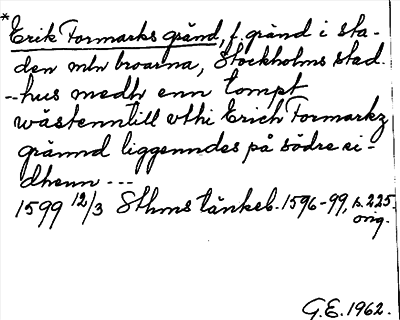 *Erik Formarks gränd, f. gränd i sta-
den mln broarna, Stockholms stad.
--hus medh enn tompt
wästenntill vthi Erich Formarkz
grännd liggenndes på södre si-
dhenn ---
1599 12/3 Sthms tänkeb. 1596-99, s. 225.
orig.
G.E. 1962.